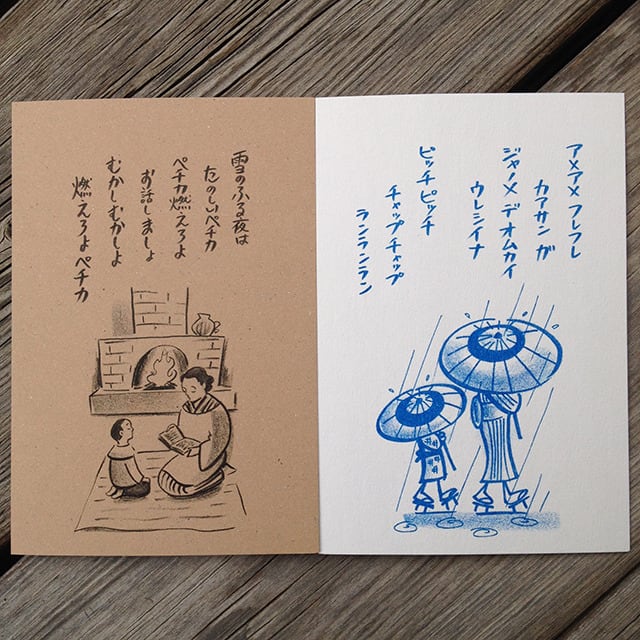 アメアメ フレフレ
カアサン ガ
ジャノメ デ オムカイ
ウレシイナ
ピッチ ピッチ
チャップ チャップ
ランランラン
雪のふる夜は
たのしいペチカ
ペチカ燃えろよ
お話しましょ
むかしむかしよ
燃えろよ ペチカ